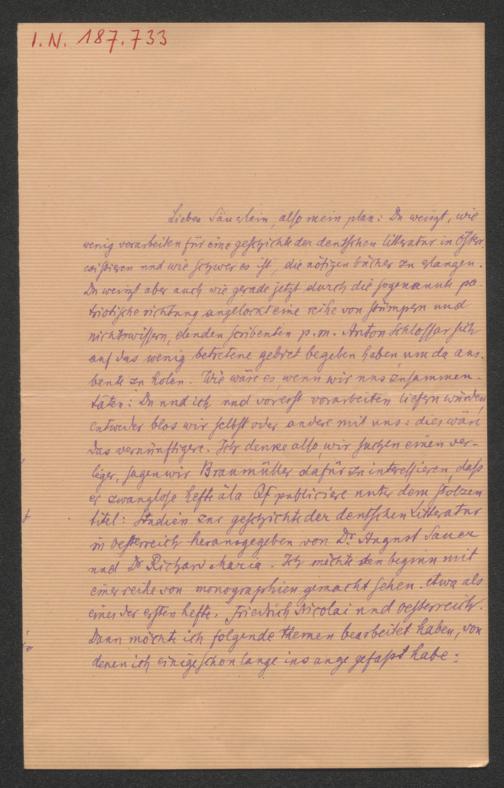 I.N. 187.733
Lieber Säuerlein, also mein plan: Du weisst, wie
wenig vorarbeiten für eine geschichte der deutschen litteratur in Öster
existieren und wie schwer es ist, die nötigen bücher zu erlangen.
Du weisst aber auch wie gerade jetzt durch die sogenannte pa
triotische richtung angelockt eine reihe von stümpern und
nichtswissern, den scribenten p.m. Anton Schlossar sich
auf das wenig betretene gebiet begeben haben um da aus-
beute zu holen. Wie wäre es, wenn wir uns zusammen-
täten: Du und ich und vorerst vorarbeiten liefern würden
entweder blos wir selbst oder andere mit uns: dies wäre
das vernünftigere. Ich denke also, wir suchen einen ver-
leger, sagen wir Braumüller dafür zu interessieren, dass
er zwanglose hefte à la QF publiciere unter dem stolzen
titel: Studien zur geschichte der deutschen Litteratur
in Oesterreich herausgegeben von Dr. August Sauer
und Dr Richard Maria. Ich möchte den beginn mit
einer reihe von monographien gemacht sehen. etwa als
eines der ersten hefte. Friedrich Nicolai und Oesterreich.
Dann möcht ich folgende themen bearbeitet haben, von
denen ich einige schon lange ins auge gefasst habe: